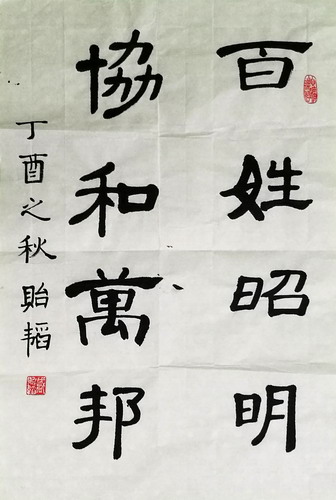 百姓昭明
協和萬邦
丁酉之秋貽韜